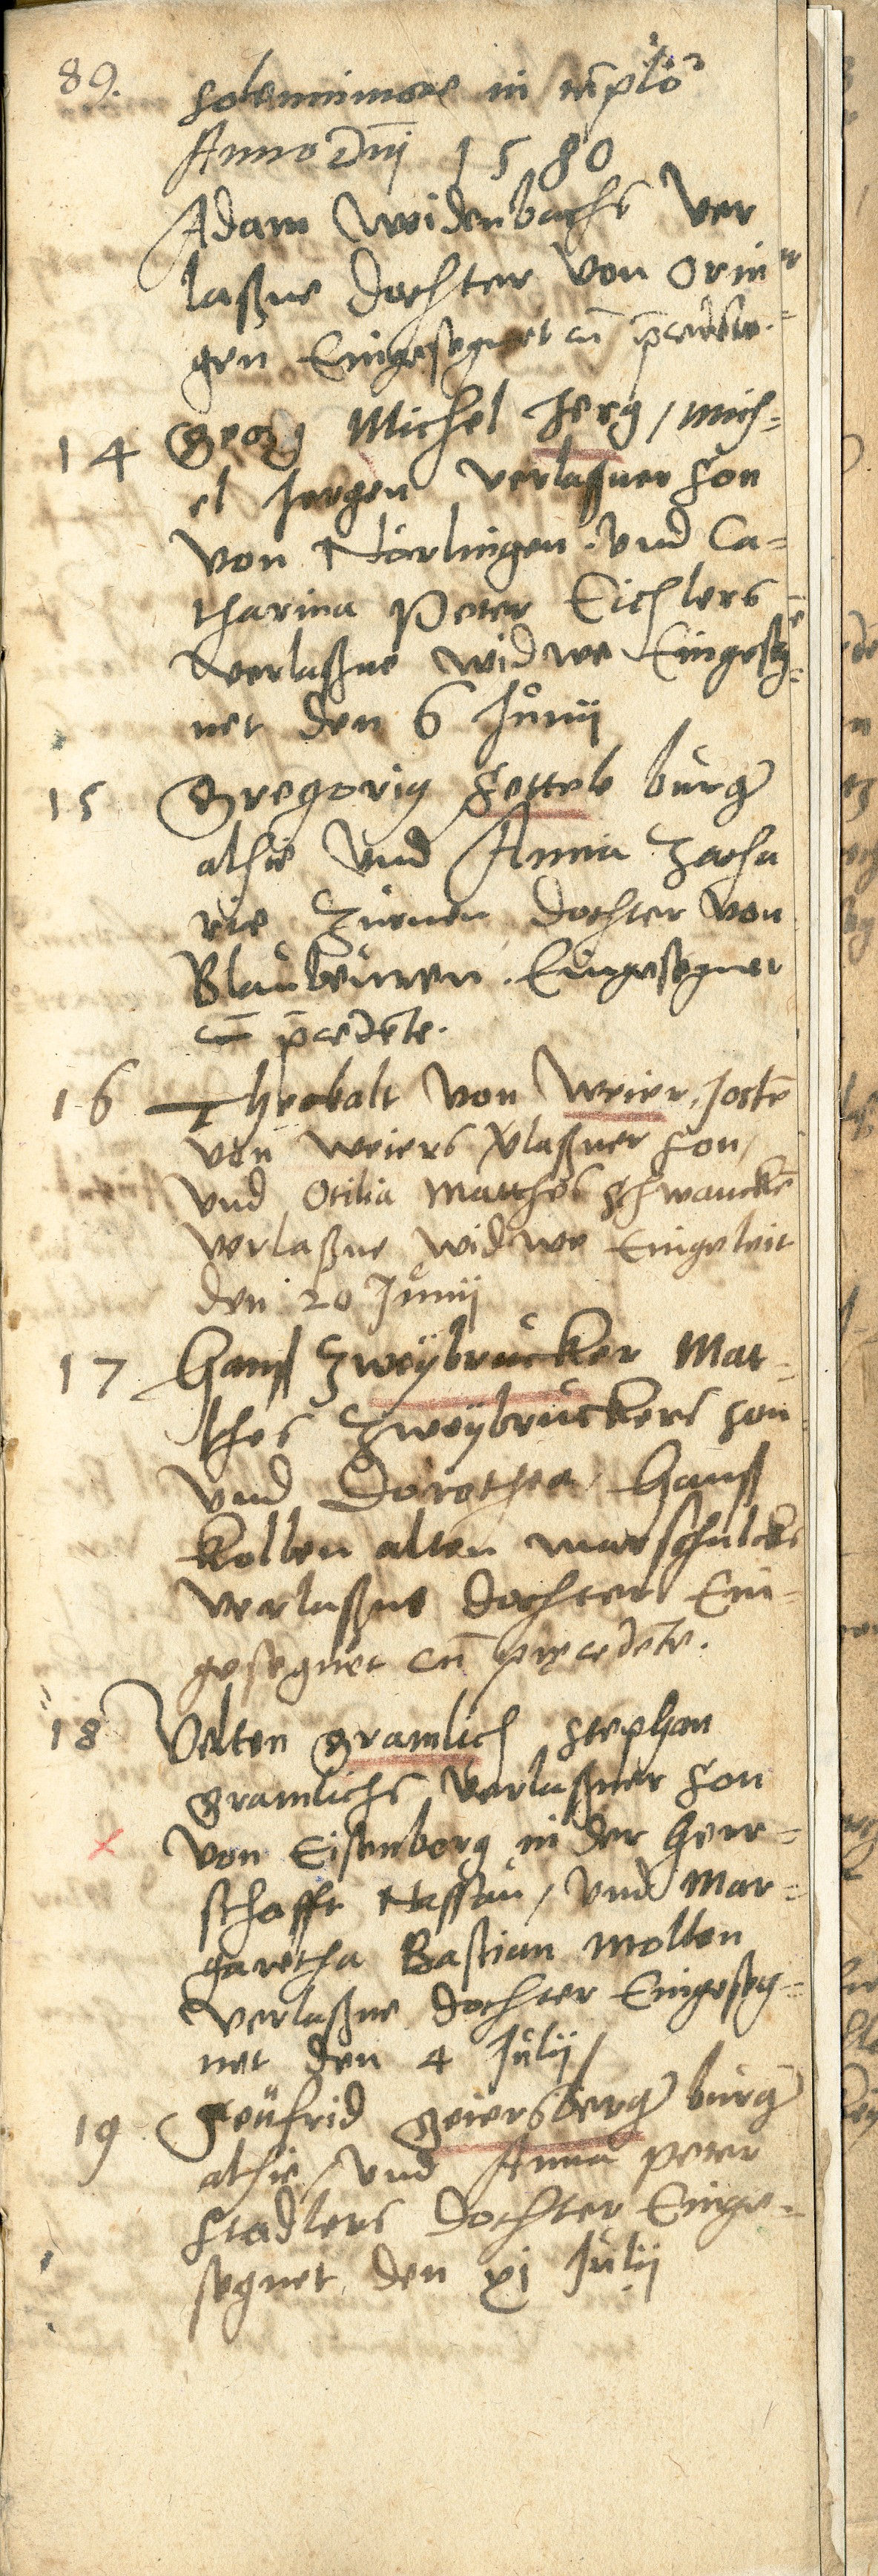 89.
solennimore in
Anno Dnj 1580
Adam Weidenbachs ver
laßne dochter von Orin
gen Eingesegnet cu pcedēte.
14 Georg Michel Jerg / Mich=
el Jergen verlaßner son
von Nörlingen. vnd Ca=
tharina Peter Eichlers
verlaßne widwe Eingeseg=
net den 6 Junij
15 Gregorig Settele burger
alhie vnd Anna Zacha
rie dochter von
Blaubeuren. Eingesegnet
cū pcedēte.
16 Theobalt von Weier, Jostē
von Weiers vlaßner son,
vnd Otilia Matthes Schwanckē
verlaßne widwe Eingeleit
den 20 Junij
17 Hanß Zweybrucker Mat=
thes Zweybruckers son
vnd Dorothea, Hanß
Kolben alten marschalcks
verlaßne dochter Ein=
gesegnet cū precedēte.
18 Velten Gramlich Stephan
Gramlichs verlaßner son
von Eisenberg in der Herr=
schafft Nassau, vnd Mar=
garetha Bastian Molben
verlaßne dochter Eingeseg=
net den 4 Julij
19 Seufrid Geiersberger burger
alhie, vnd Anna Peter
Stadlers dochter Einge=
segnet den xj Julij